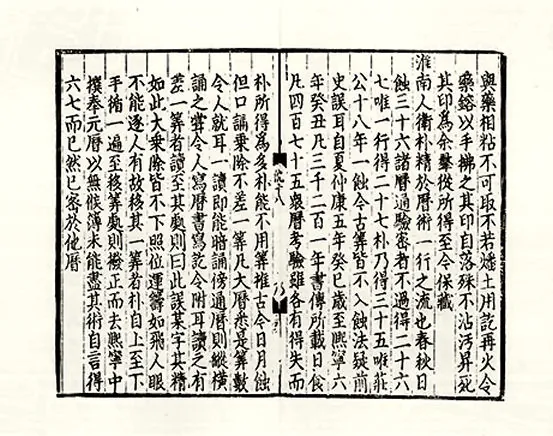 與藥相粘不可取不若燔土用訖再火令
藥鎔以手拂之其印自落殊不沾汚昇死
其印為余羣從所得至今保藏
淮南人衛朴精於曆術一行之流也春秋日
蝕三十六諸曆通驗密者不過得二十六
七唯一行得二十七朴乃得三十五唯莊
公十八年一蝕今古筭皆不入蝕法疑前
史誤耳自夏仲康五年癸巳歲至熙寧六
年癸丑凡三千二百一年書傳所載日食
凡四百七十五衆曆考驗雖各有得失而
十八
朴所得為多朴能不用筭推古今日月蝕
但口誦乗除不差一筭凡大曆悉是筭數
令人就耳一讀即能暗誦傍通曆則縱橫
誦之嘗令人寫曆書寫訖令附耳讀之有
差一筭者讀至其處則曰此誤某字其精
如此大乗除皆不下照位運籌如飛人眼
不能逐人有故移其一筭者朴自上至下
手循一遍至移筭處則撥正而去熙寧中
撰奉元曆以無候簿未能盡其術自言得
六七而已然已密於他曆